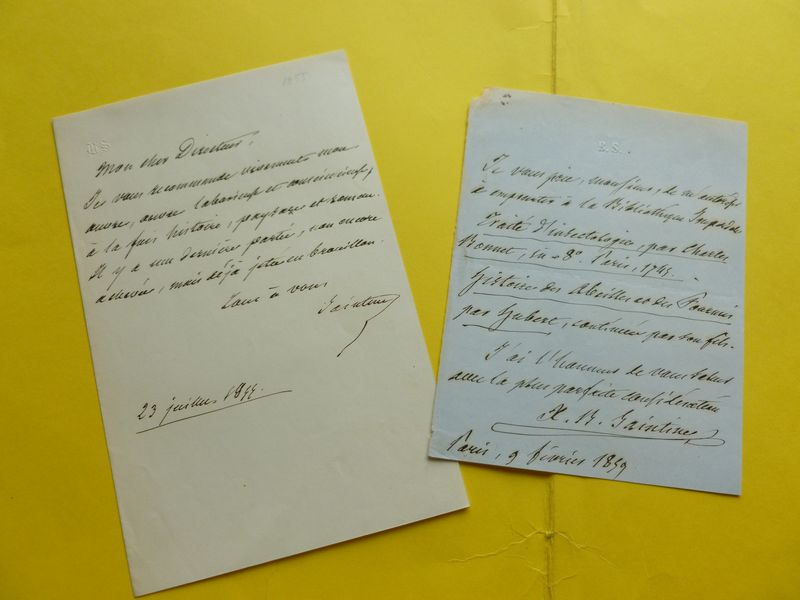 1855
BS
Mon cher Directeur,
Je vous recommande vivement mon
œuvre, œuvre laborieuse et consciencieuse,
à la fois histoire, paysages et roman.
Il y a une dernière partie, non encore
achevée, mais déjà jetée en brouillon.
Tout à vous
Saintine
23 juillet 1855
B.S.
Je vous prie, monsieur, de m'autoriser
à emprunter à la Bibliothèque Impériale
Traité d'insectologie, par Charles
Bonnet, in-8°. Paris, 1745.
Histoire des Abeilles et des Fourmis
par Hubert, continuée par son fils.
J'ai l'honneur de vous saluer
avec la plus parfaite considération
X. B. Saintine
Paris, 9 février 1859